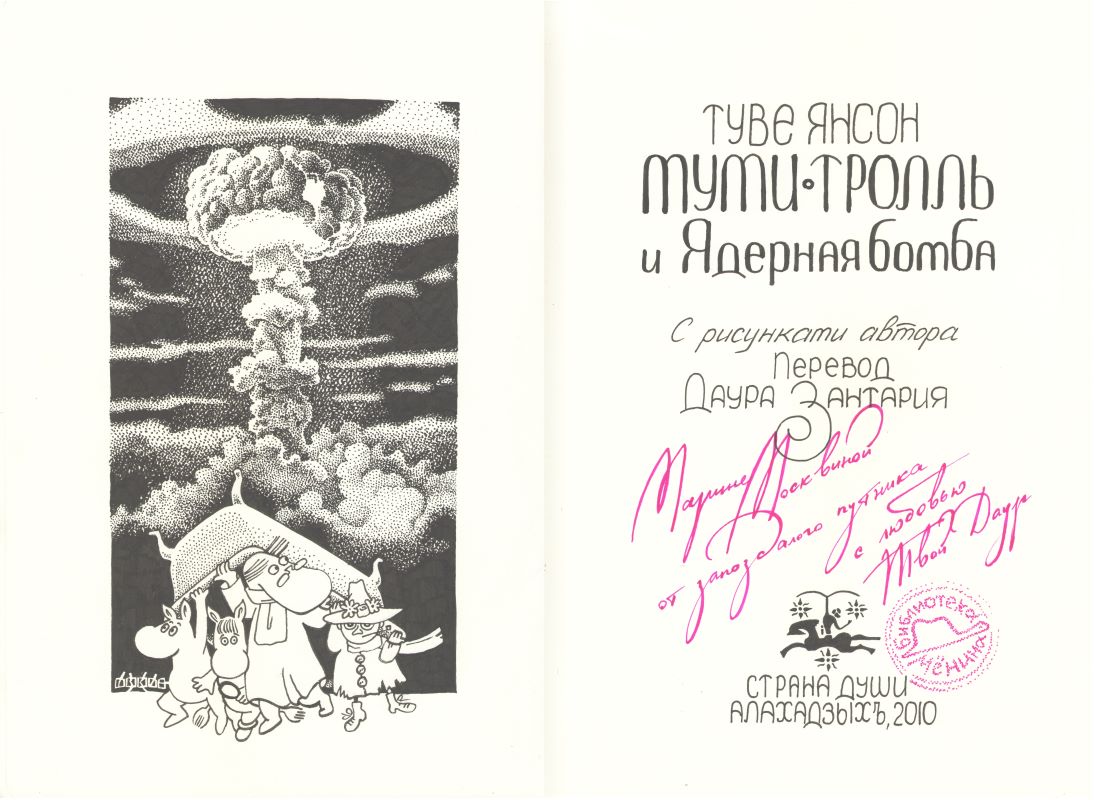 ТУВЕ ЯНСОН
МУМИ-ТРОЛЛЬ
и Ядерная бомба
С рисунками автора
Перевод
Даура Зантария
Марине Москвиной
от запоздалого путника
с любовью
Твой Даур
БИБЛИОТЕКА
МЁНИНА
СТРАНА ДУШИ
АЛАХАДЗЫХЪ, 2010